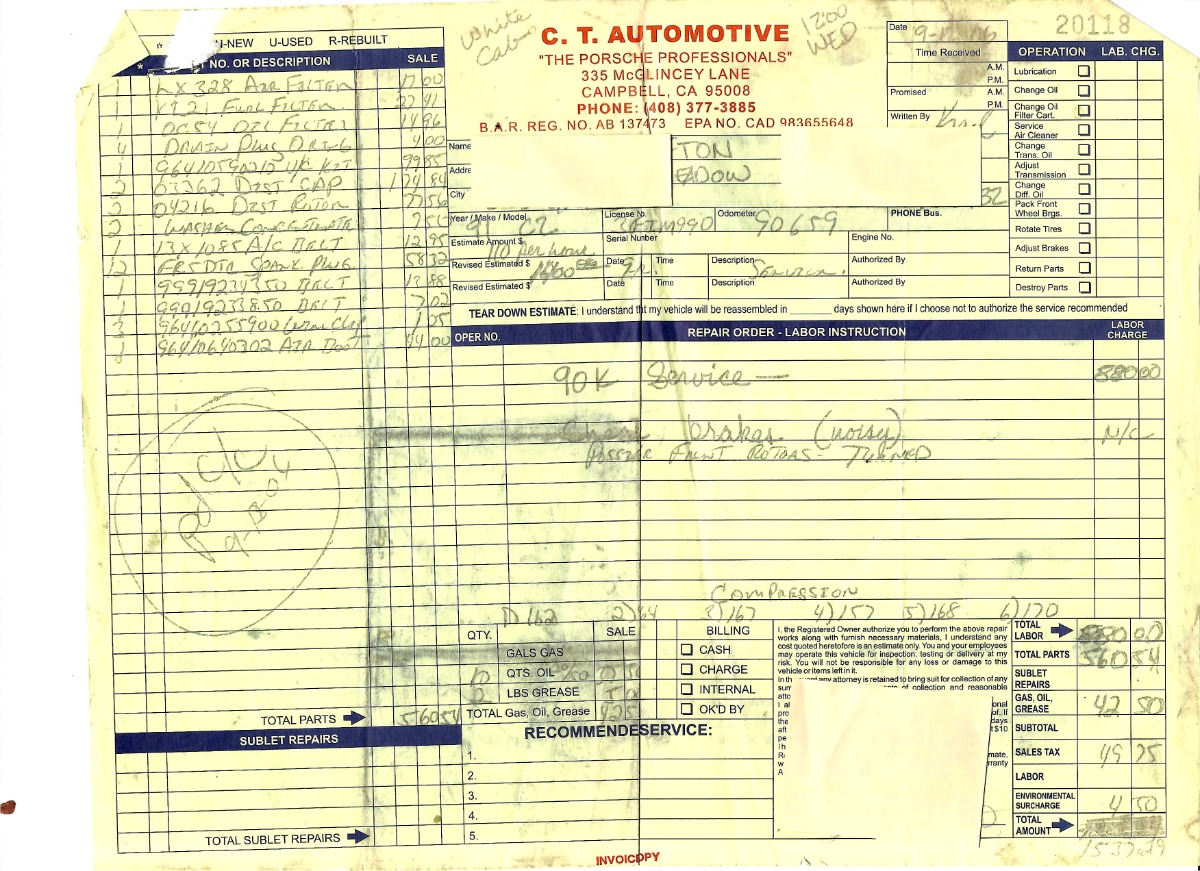 White
Cab
12:00
WED
C. T. AUTOMOTIVE
"THE PORSCHE PROFESSIONALS"
335 McGLINCEY LANE
CAMPBELL, CA 95008
PHONE: (408) 377-3885
B.A.R. REG. NO. AB 137473 EPA NO. CAD 983655648
20118
Date
Time Received
A.M.
P.M.
Promised
A.M.
P.M.
Written By
OPERATION LAB. CHG.
Lubrication
Change Oil
Change Oil Filter Cart.
Service Air Cleaner
Change Trans. Oil
Adjust Transmission
Change Diff. Oil
Pack Front Wheel Brgs.
Rotate Tires
Adjust Brakes
Return Parts
Destroy Parts
N-NEW U-USED R-REBUILT
NO. OR DESCRIPTION SALE
1 LX 328 AIR FILTER 17.00
1 FUEL FILTER 41
1 OC54 OIL FILTER 14.96
4 DRAIN PLUG O RING 4.00
1 KIT 99.85
2 03262 DIST CAP 174.84
2 04216 DIST ROTOR 56
2 WASHER CONCENTRATE
1 13X1085 A/C BELT 12.95
12 FR5DTC SPARK PLUG 58.32
1 99919234350 BELT 13.88
1 99919233850 BELT 7.02
3 96410255900
1 96410640302 AIR 44.00
Name
TON
Addre
EADOW
City
32
Year / Make / Model
91 C2
License No.
Odometer
90659
PHONE Bus.
Estimate Amount $
110 per hour
Serial Number
Engine No.
Revised Estimated $
Date
Time
Description
Service
Authorized By
Revised Estimated $
Date
Time
Description
Authorized By
TEAR DOWN ESTIMATE: I understand tht my vehicle will be reassembled in ______ days shown here if I choose not to authorize the service recommended
OPER NO. REPAIR ORDER - LABOR INSTRUCTION LABOR CHARGE
90K Service — 880.00
Check brakes (noisy) N/C
FRONT ROTORS - TURNED
Pd
COMPRESSION
1) 162 2) 164 3) 167 4) 157 5) 168 6) 170
QTY. SALE
GALS GAS
10 QTS. OIL
LBS GREASE
TOTAL Gas, Oil, Grease
TOTAL PARTS 560 54
BILLING
CASH
CHARGE
INTERNAL
OK'D BY
I, the Registered Owner authorize you to perform the above repair
works along with furnish necessary materials, I understand any
cost quoted heretofore is an estimate only. You and your employees
may operate this vehicle for inspection, testing or delivery at my
risk. You will not be responsible for any loss or damage to this
vehicle or items left in it.
any attorney is retained to bring suit for collection of any
of collection and reasonable
TOTAL LABOR 880 00
TOTAL PARTS 560 54
SUBLET REPAIRS
GAS, OIL, GREASE 42 50
SUBTOTAL
SALES TAX 49 75
LABOR
ENVIRONMENTAL SURCHARGE 4 50
TOTAL AMOUNT
1537.29
SUBLET REPAIRS
TOTAL SUBLET REPAIRS
RECOMMENDESERVICE:
1.
2.
3.
4.
5.
INVOICOPY